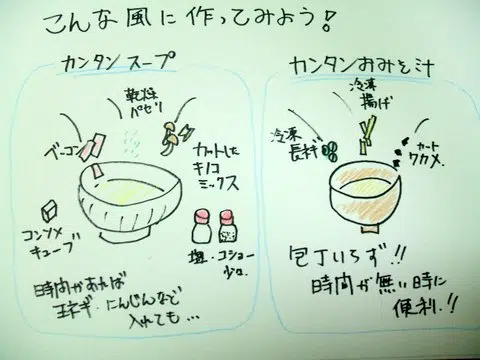 こんな風に作ってみよう!
カンタンスープ
乾燥
パセリ
ベーコン
カットした
キノコ
ミックス
コンソメ
キューブ
塩・コショー
少々
時間があれば
玉ネギ・にんじんなど
入れても…
カンタンおみそ汁
冷凍
揚げ
冷凍
長ネギ
カット
ワカメ
包丁いらず!!
時間が無い時に
便利!!